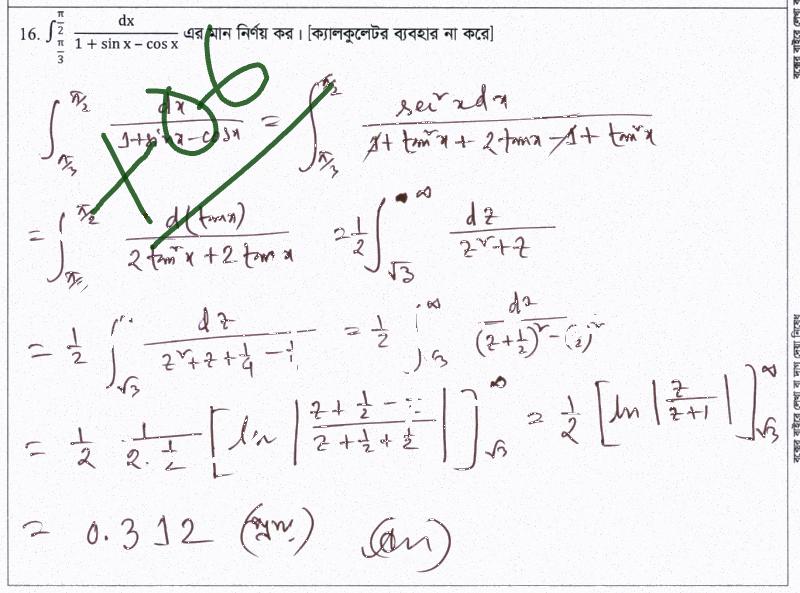 16. ∫_{π/3}^{π/2} dx / (1 + sin x – cos x) এর মান নির্ণয় কর। [ক্যালকুলেটর ব্যবহার না করে]
∫_{π/3}^{π/2} dx / (1+sin x - cos x) = ∫_{π/3}^{π/2} sec²x dx / (1 + tan²x + 2 tan x - 1 + tan²x)
= ∫^{π/2} d(tan x) / (2 tan²x + 2 tan x) = 1/2 ∫_{√3}^{∞} dz / (z²+z)
= 1/2 ∫_{√3} dz / (z²+z+1/4 - ) = 1/2 ∫_{√3}^{∞} dz / ((z+1/2)² - ( )²)
= 1/2 · 1/(2·1/2) [ln |(z+1/2 - ) / (z+1/2+1/2)|]_{√3}^{∞} = 1/2 [ln |z/(z+1)|]_{√3}^{∞}
= 0.312 (প্রায়) (Ans)